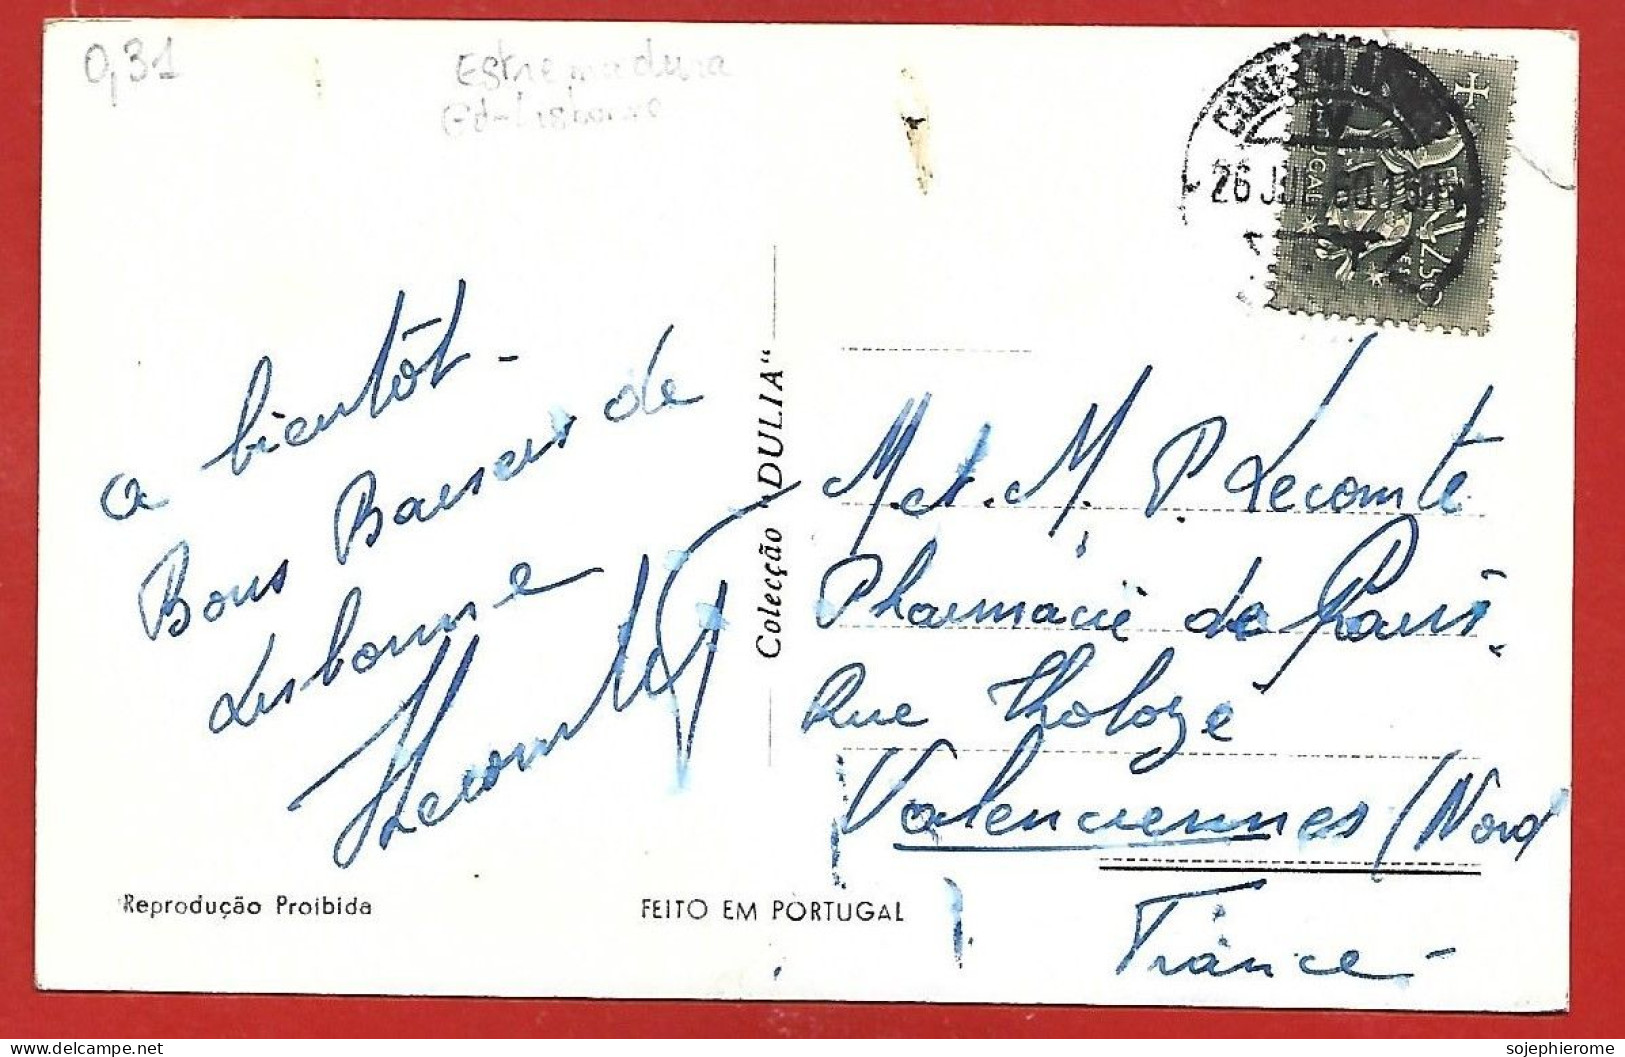 0,31
Estremadura
Ed-Lisbonne
26 JUL.60.19H
PORTUGAL
2.50
a bientôt -
Bons Baisers de
Lisbonne
HLecomte
Colecção „DULIA“
M. et. M. P. Lecomte
Pharmacie de Paris.
Rue Tholozé
Valenciennes (Nord
France -
Reprodução Proibida
FEITO EM PORTUGAL
sojephierome